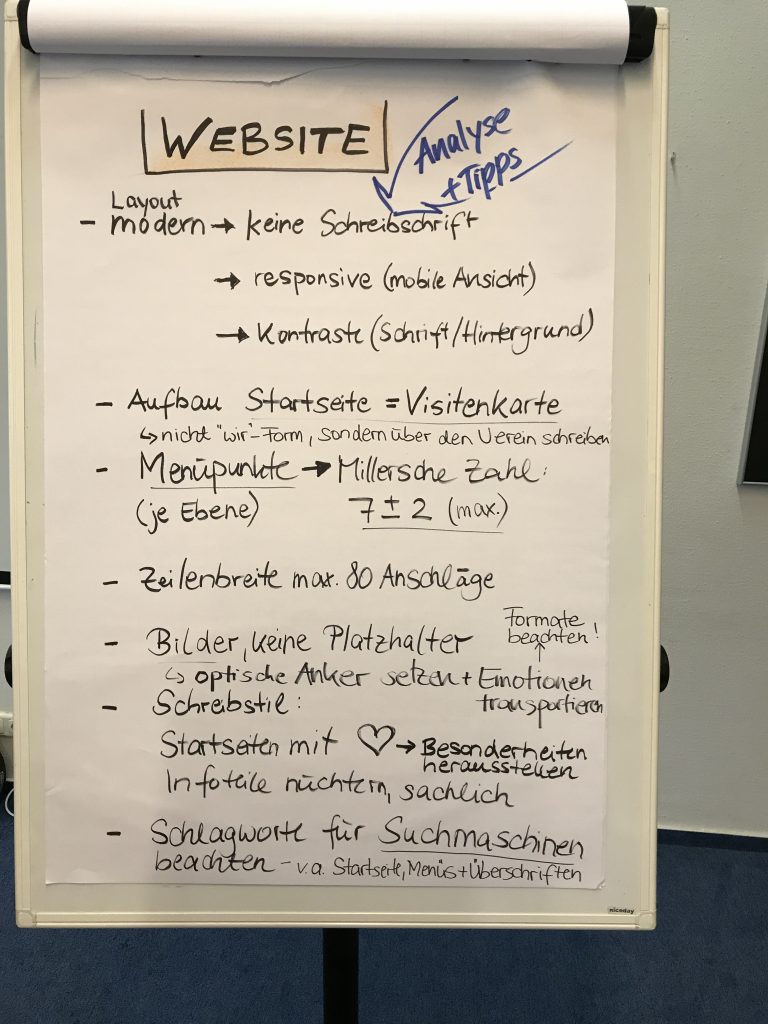 WEBSITE
Analyse
+ Tipps
Layout
- modern → keine Schreibschrift
→ responsive (mobile Ansicht)
→ Kontraste (Schrift/Hintergrund)
- Aufbau Startseite = Visitenkarte
↳ nicht "wir"-Form, sondern über den Verein schreiben
- Menüpunkte → Millersche Zahl:
(je Ebene) 7 ± 2 (max.)
- Zeilenbreite max. 80 Anschläge
Formate
beachten!
- Bilder, keine Platzhalter
↳ optische Anker setzen + Emotionen
transportieren
- Schreibstil:
Startseiten mit ♡ → Besonderheiten
herausstellen
Infoteile nüchtern, sachlich
- Schlagworte für Suchmaschinen
beachten - v.a. Startseite, Menüs + Überschriften
niceday